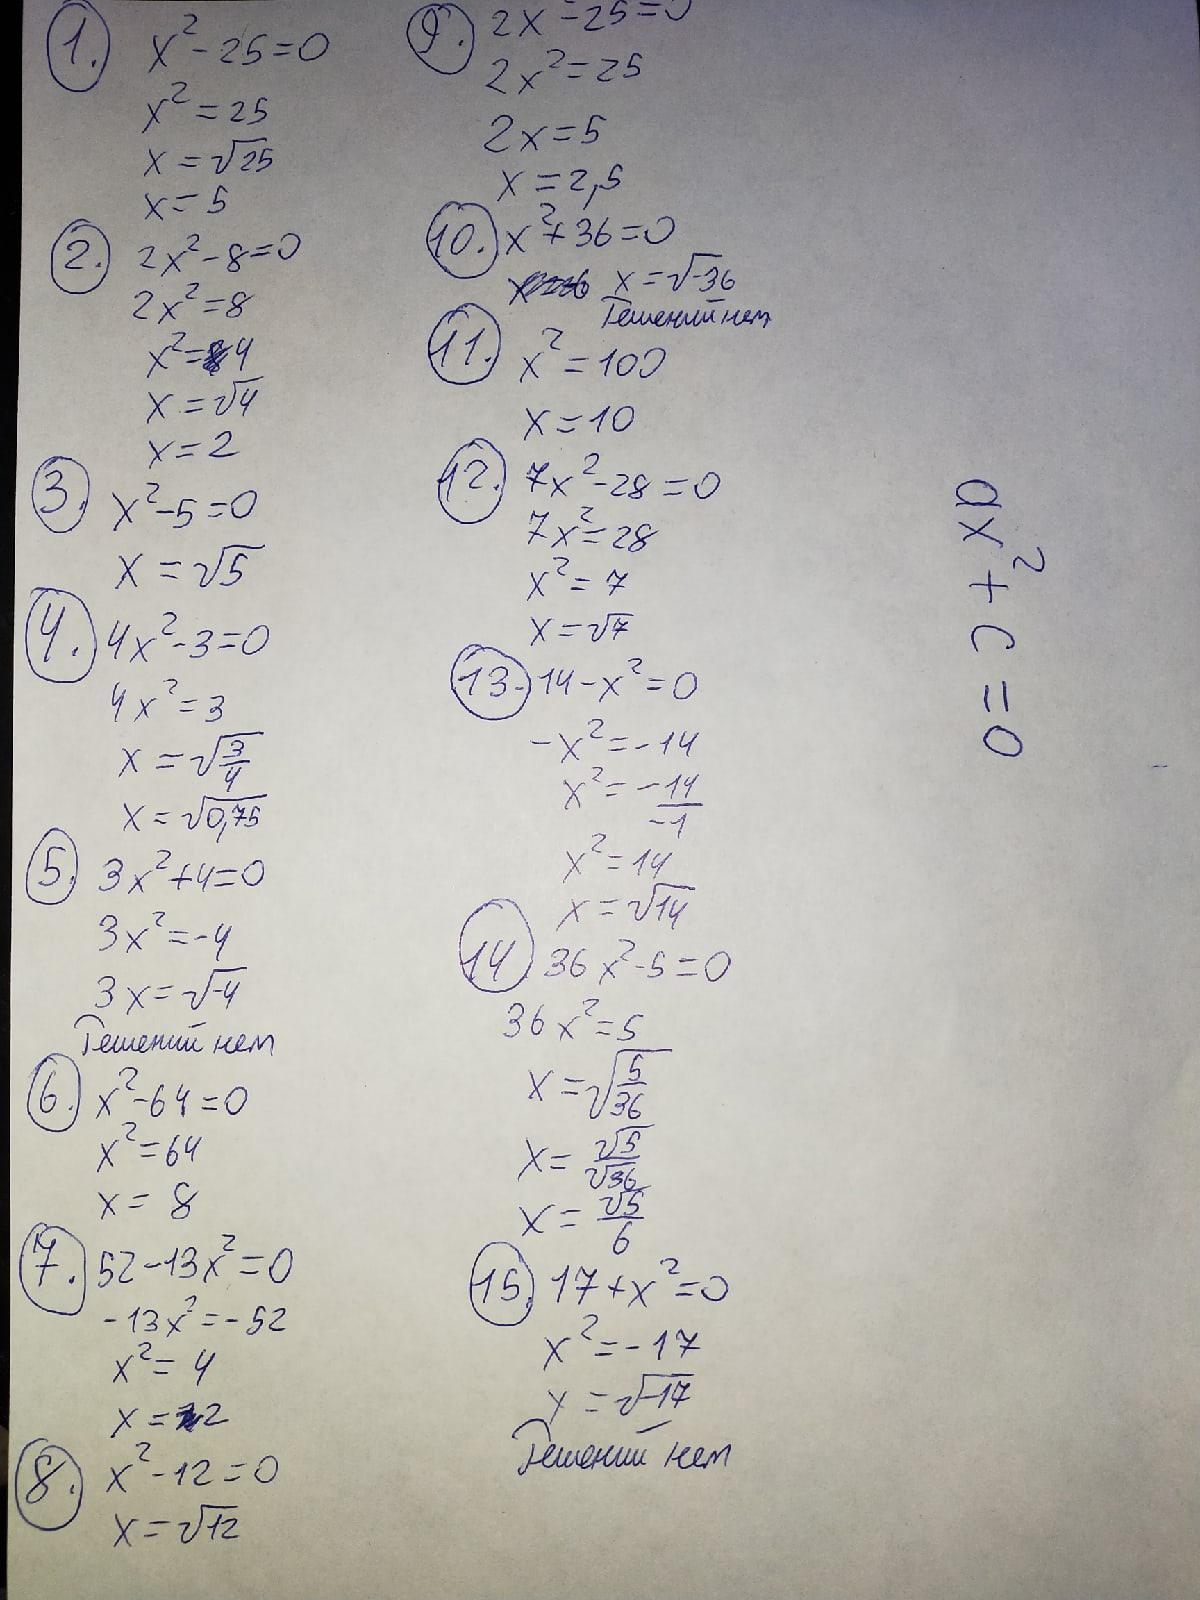 1. x²-25=0
x²=25
x=√25
x=5
2. 2x²-8=0
2x²=8
x²=4
x=√4
x=2
3. x²-5=0
x=√5
4. 4x²-3=0
4x²=3
x=√3/4
x=√0,75
5. 3x²+4=0
3x²=-4
3x=√-4
Решений нет
6. x²-64=0
x²=64
x=8
7. 52-13x²=0
-13x²=-52
x²=4
x=2
8. x²-12=0
x=√12
9. 2x²-25=0
2x²=25
2x=5
x=2,5
10. x²+36=0
x=√-36
Решений нет
11. x²=100
x=10
12. 7x²-28=0
7x²=28
x²=7
x=√7
13. 14-x²=0
-x²=-14
x²=-14/-1
x²=14
x=√14
14. 36x²-5=0
36x²=5
x=√5/36
x=√5/√36
x=√5/6
15. 17+x²=0
x²=-17
x=√-17
Решений нет
ax²+c=0